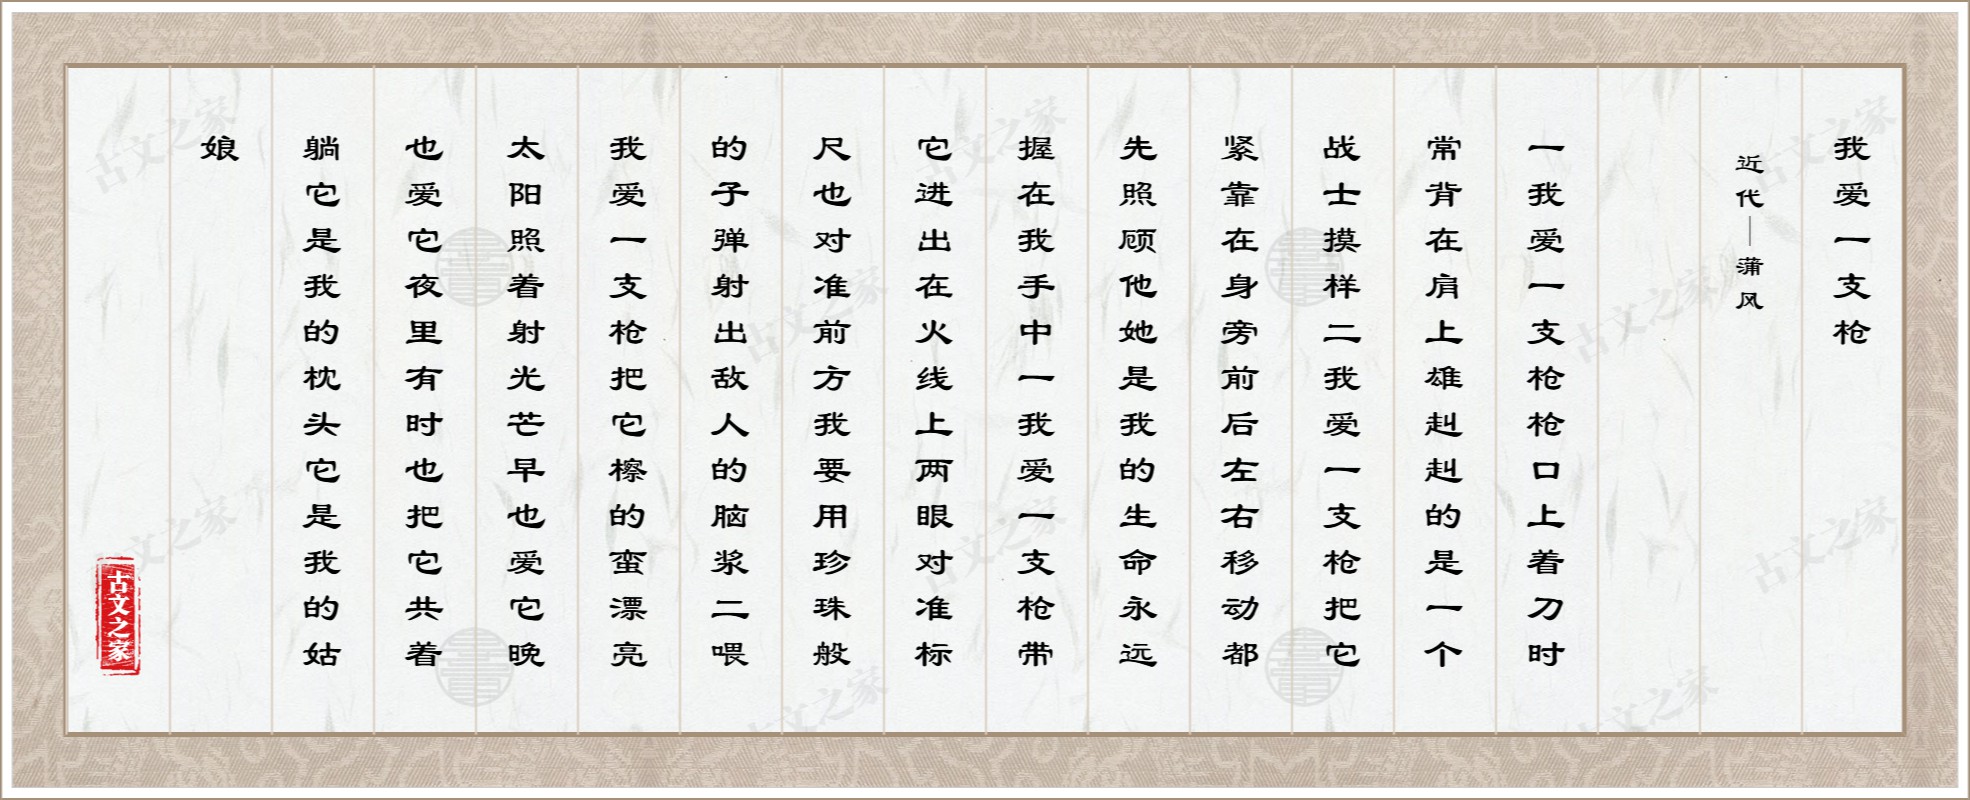 我爱一支枪
近代—蒲风
一我爱一支枪枪口上着刀时
常背在肩上雄赳赳的是一个
战士摸样二我爱一支枪把它
紧靠在身旁前后左右移动都
先照顾他她是我的生命永远
握在我手中一我爱一支枪带
它进出在火线上两眼对准标
尺也对准前方我要用珍珠般
的子弹射出敌人的脑浆二喂
我爱一支枪把它檫的蛮漂亮
太阳照着射光芒早也爱它晚
也爱它夜里有时也把它共着
躺它是我的枕头它是我的姑
娘
古文之家